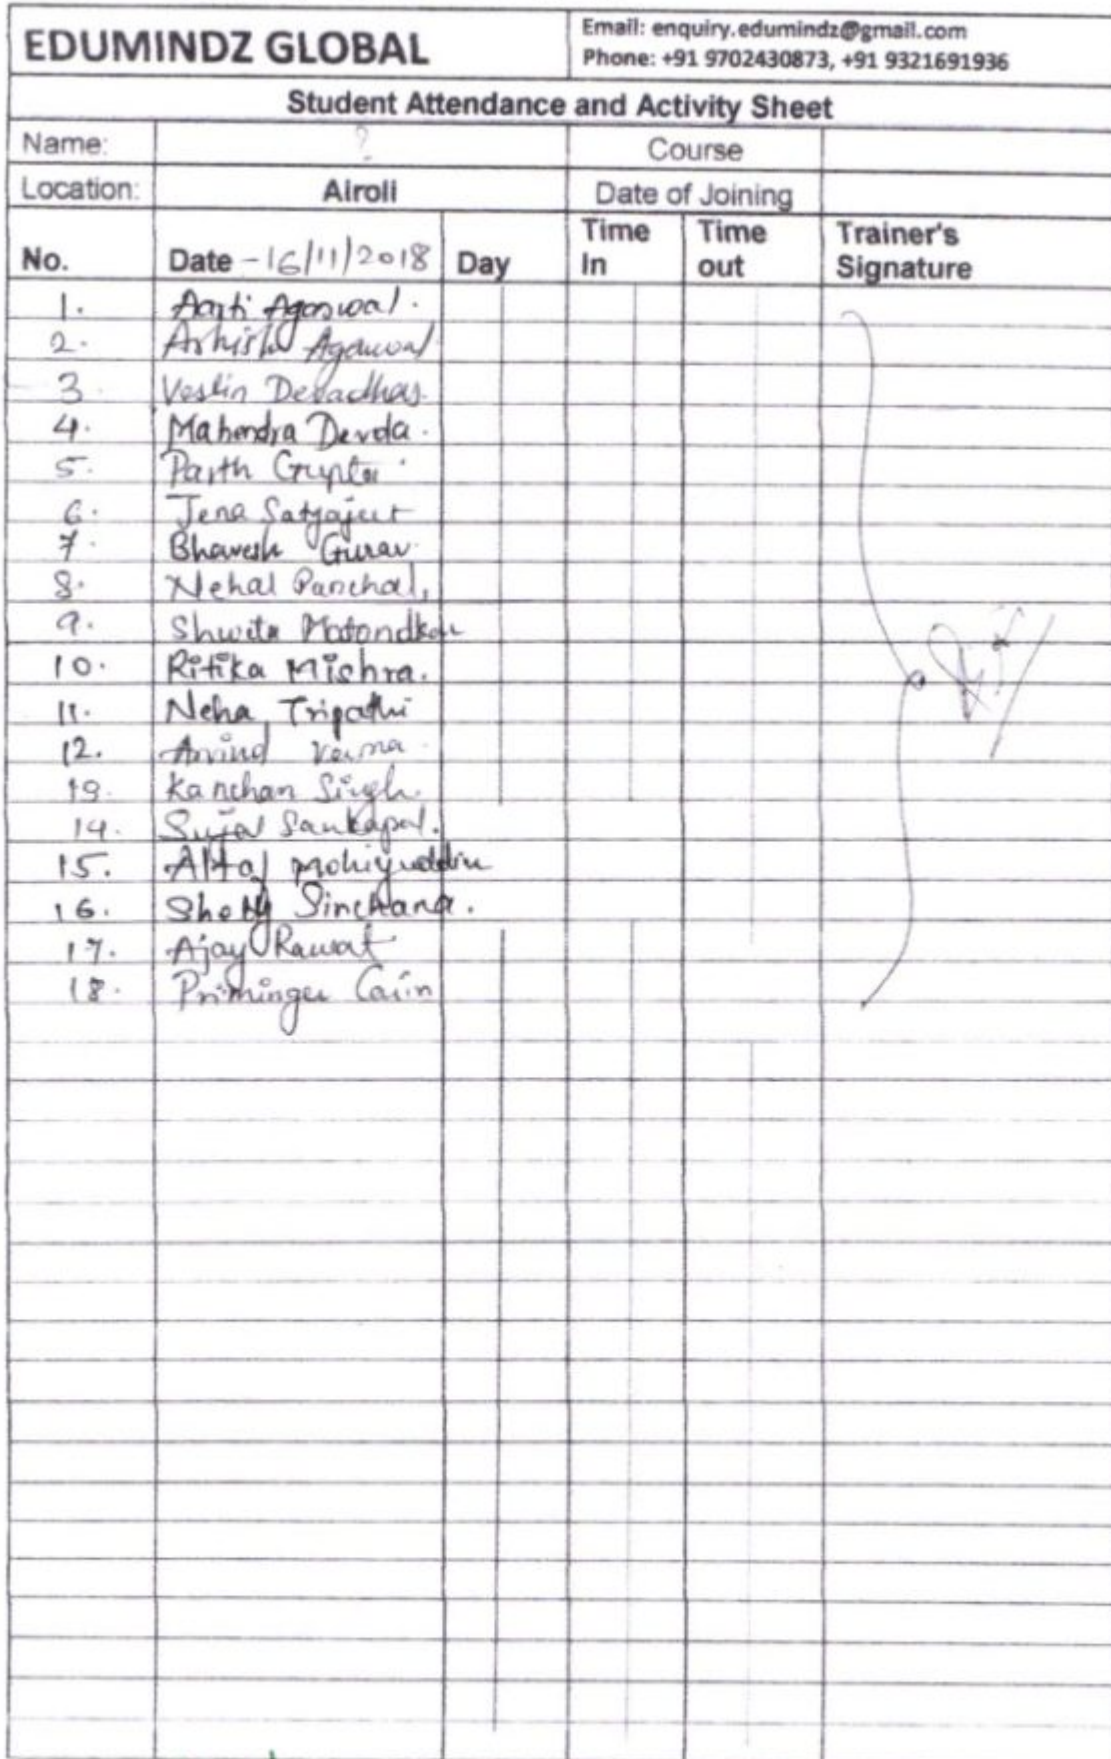 EDUMINDZ GLOBAL
Email: enquiry.edumindz@gmail.com
Phone: +91 9702430873, +91 9321691936
Student Attendance and Activity Sheet
Name: ? Course
Location: Airoli Date of Joining
No. Date - 16/11/2018 Day Time In Time out Trainer's Signature
1. Aarti Agarwal.
2. Ashish Agarwal
3. Veslin Devadhas.
4. Mahendra Devda.
5. Parth Gupta.
6. Jena Satyajeet
7. Bhavesh Gurav.
8. Nehal Panchal,
9. Shweta Matondkar
10. Ritika Mishra.
11. Neha Tripathi
12. Arvind Verma.
13. Kanchan Singh.
14. Sujal Sankapal.
15. Altaf Mohiyuddin
16. Shetty Sinchana.
17. Ajay Rawat
18.